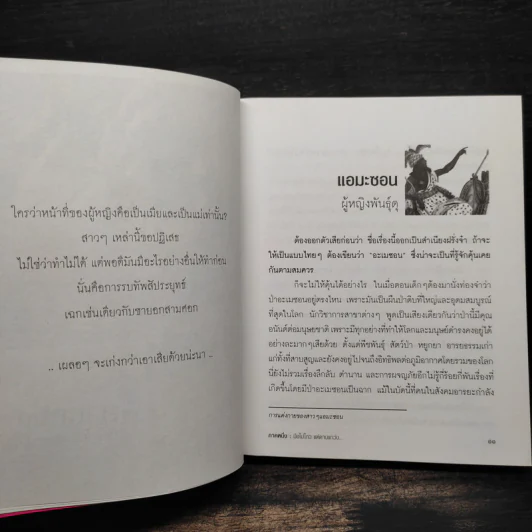 ใครว่าหน้าที่ของผู้หญิงคือเป็นเมียและเป็นแม่เท่านั้น?
สาวๆ เหล่านี้ขอปฏิเสธ
ไม่ใช่ว่าทำไม่ได้ แต่พอดีมันมีอะไรอย่างอื่นให้ทำก่อน
นั่นคือการรบทัพสัประยุทธ์
เฉกเช่นเดียวกับชายอกสามศอก
.. เผลอๆ จะเก่งกว่าเอาเสียด้วยน่ะนา ..
แอมะซอน
ผู้หญิงพันธุ์ดุ
ต้องออกตัวเสียก่อนว่า ชื่อเรื่องนี้ออกเป็นสำเนียงฝรั่งจ๋า ถ้าจะ
ให้เป็นแบบไทยๆ ต้องเขียนว่า 'อะเมซอน' ซึ่งน่าจะเป็นที่รู้จักคุ้นเคย
กันตามสมควร
ก็จะไม่ให้คุ้นได้อย่างไร ในเมื่อตอนเด็กๆต้องมานั่งท่องจำว่า
ป่าอะเมซอนอยู่ตรงไหน เพราะมันเป็นผืนป่าดิบที่ใหญ่และอุดมสมบูรณ์
ที่สุดในโลก นักวิชาการสาขาต่าง ๆ พูดเป็นเสียงเดียวกันว่าป่านี้มีคุณ
อนันต์ต่อมนุษยชาติ เพราะมีทุกอย่างที่ทำให้โลกและมนุษย์ดำรงคงอยู่ได้
อย่างละมากๆเสียด้วย ตั้งแต่พืชพันธุ์ สัตว์ป่า หยูกยา อารยธรรมเก่า
แก่ทั้งที่สาบสูญและยังคงอยู่ไปจนถึงอิทธิพลต่อภูมิอากาศโดยรวมของโลก
นี่ยังไม่รวมเรื่องลึกลับ ตำนาน และการผจญภัยอีกไม่รู้กี่ร้อยกี่พันเรื่องที่
เกิดขึ้นโดยมีป่าอะเมซอนเป็นฉาก แม้ในบัดนี้ที่คนในสังคมอารยะกำลัง
การแต่งกายของสาวๆแอมะซอน
ภาคหนึ่ง :
๑๑